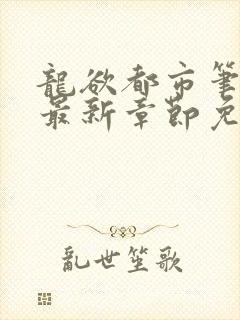 龍欲都市筆
最新章節免
亂世笙歌